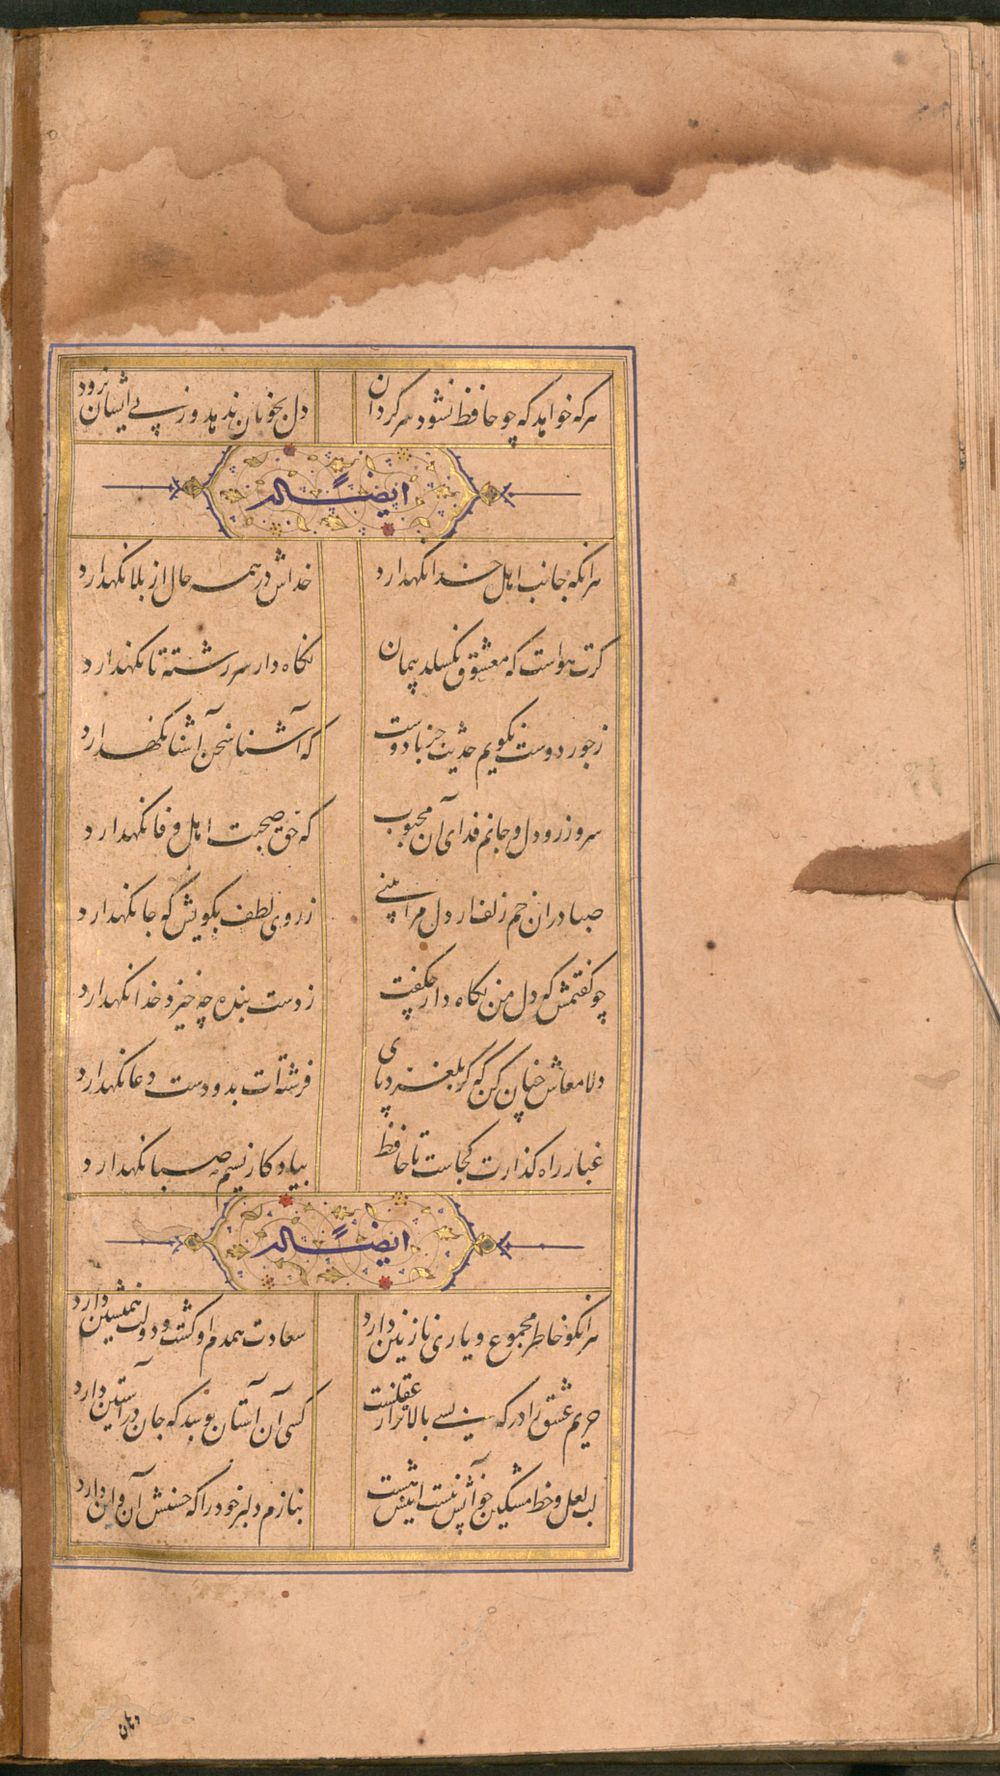 هرکه خواهد که چو حافظ نشود سرکردان دل بخوبان ندهد وز پی ایشان نرود
ایضاً له
هرانکه جانب اهل خدا نکهدارد خداش در همه حال از بلا نکهدارد
کرت هواست که معشوق نکسلد پیمان نکاه دار سر رشته تا نکهدارد
ز جور دوست نکویم حدیث جز با دوست که آشنا سخن آشنا نکهدارد
سر و زر و دل و جانم فدای آن محبوب که حق صحبت اهل وفا نکهدارد
صبا دران خم زلف ار دل مرا بینی ز روی لطف بکویش که جا نکهدارد
چو کفتمش که دل من نکاه دار چکفت ز دست بنده چه خیزد خدا نکهدارد
دلا معاش چنان کن که کر بلغزد پای فرشته‌ات بدو دست دعا نکهدارد
غبار راه کذارت کجاست تا حافظ بیادکار نسیم صبا نکهدارد
ایضاً له
هرانکو خاطر مجموع و یاری نازنین دارد سعادت همدم او کشت و دولت همنشین دارد
حریم عشق را درکه بسی بالاتر از عقلست کسی آن آستان بوسد که جان در آستین دارد
لب لعل و خط مشکین چو آنش نیست اینش هست بنازم دلبر خود را که حسنش آن و این دارد
دهان